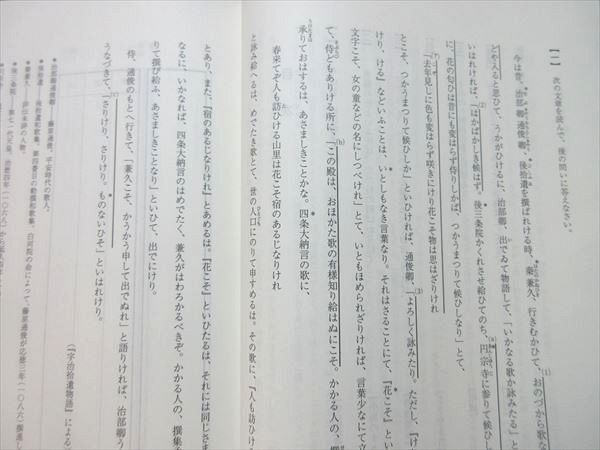 【二】 次の文章を読んで、後の問いに答えなさい。
今は昔、治部卿通俊卿、後拾遺を撰ばれける時、秦兼久、行きむかひて、おのづから歌な
どや入ると思ひて、うかがひけるに、治部卿、出でゐて物語して、「いかなる歌か詠みたる」と
いはれければ、「はかばかしき候はず。後三条院かくれさせ給ひてのち、円宗寺に参りて候ひし
に、花の匂ひは昔にも変はらず侍りしかば、つかうまつりて候ひしなり」とて、
「去年見しに色も変はらず咲きにけり花こそ物は思はざりけれ
とこそ、つかうまつりて候ひしか」といひければ、通俊卿、「よろしく詠みたり。ただし、『け
り、ける』などいふことは、いとしもなき言葉なり。それはさることにて、『花こそ』とい
文字こそ、女の童などの名にしつべけれ」とて、いともほめられざりければ、言葉少なにて立
て、侍どもありける所に、「この殿は、おほかた歌の有様知り給はぬにこそ。かかる人の、
承りておはするは、あさましきことかな。四条大納言の歌に、
春来てぞ人も訪ひける山里は花こそ宿のあるじなりけれ
と詠み給へるは、めでたき歌とて、世の人口にのりて申すめるは。その歌に、『人も訪ひけ
とあり、また、『宿のあるじなりけれ』とあめるは。『花こそ』といひたるは、それには同じさま
なるに、いかなれば、四条大納言のはめでたく、兼久がはわろかるべきぞ。かかる人の、撰集
りて撰び給ふ、あさましきことなり」といひて、出でにけり。
侍、通俊のもとへ行きて、「兼久こそ、かうかう申して出でぬれ」と語りければ、治部卿う
うなづきて、「さりけり、さりけり。ものないひそ」といはれけり。
(『宇治拾遺物語』による)
*治部卿通俊卿―藤原通俊。平安時代の歌人。
*後拾遺―後拾遺和歌集。第四番目の勅撰和歌集。白河院の命によって、藤原通俊が応徳三年(一〇八六)に撰進し
*秦兼久―詳伝未詳の人物。
*後三条院―第七一代天皇。治暦四年(一〇六八)から